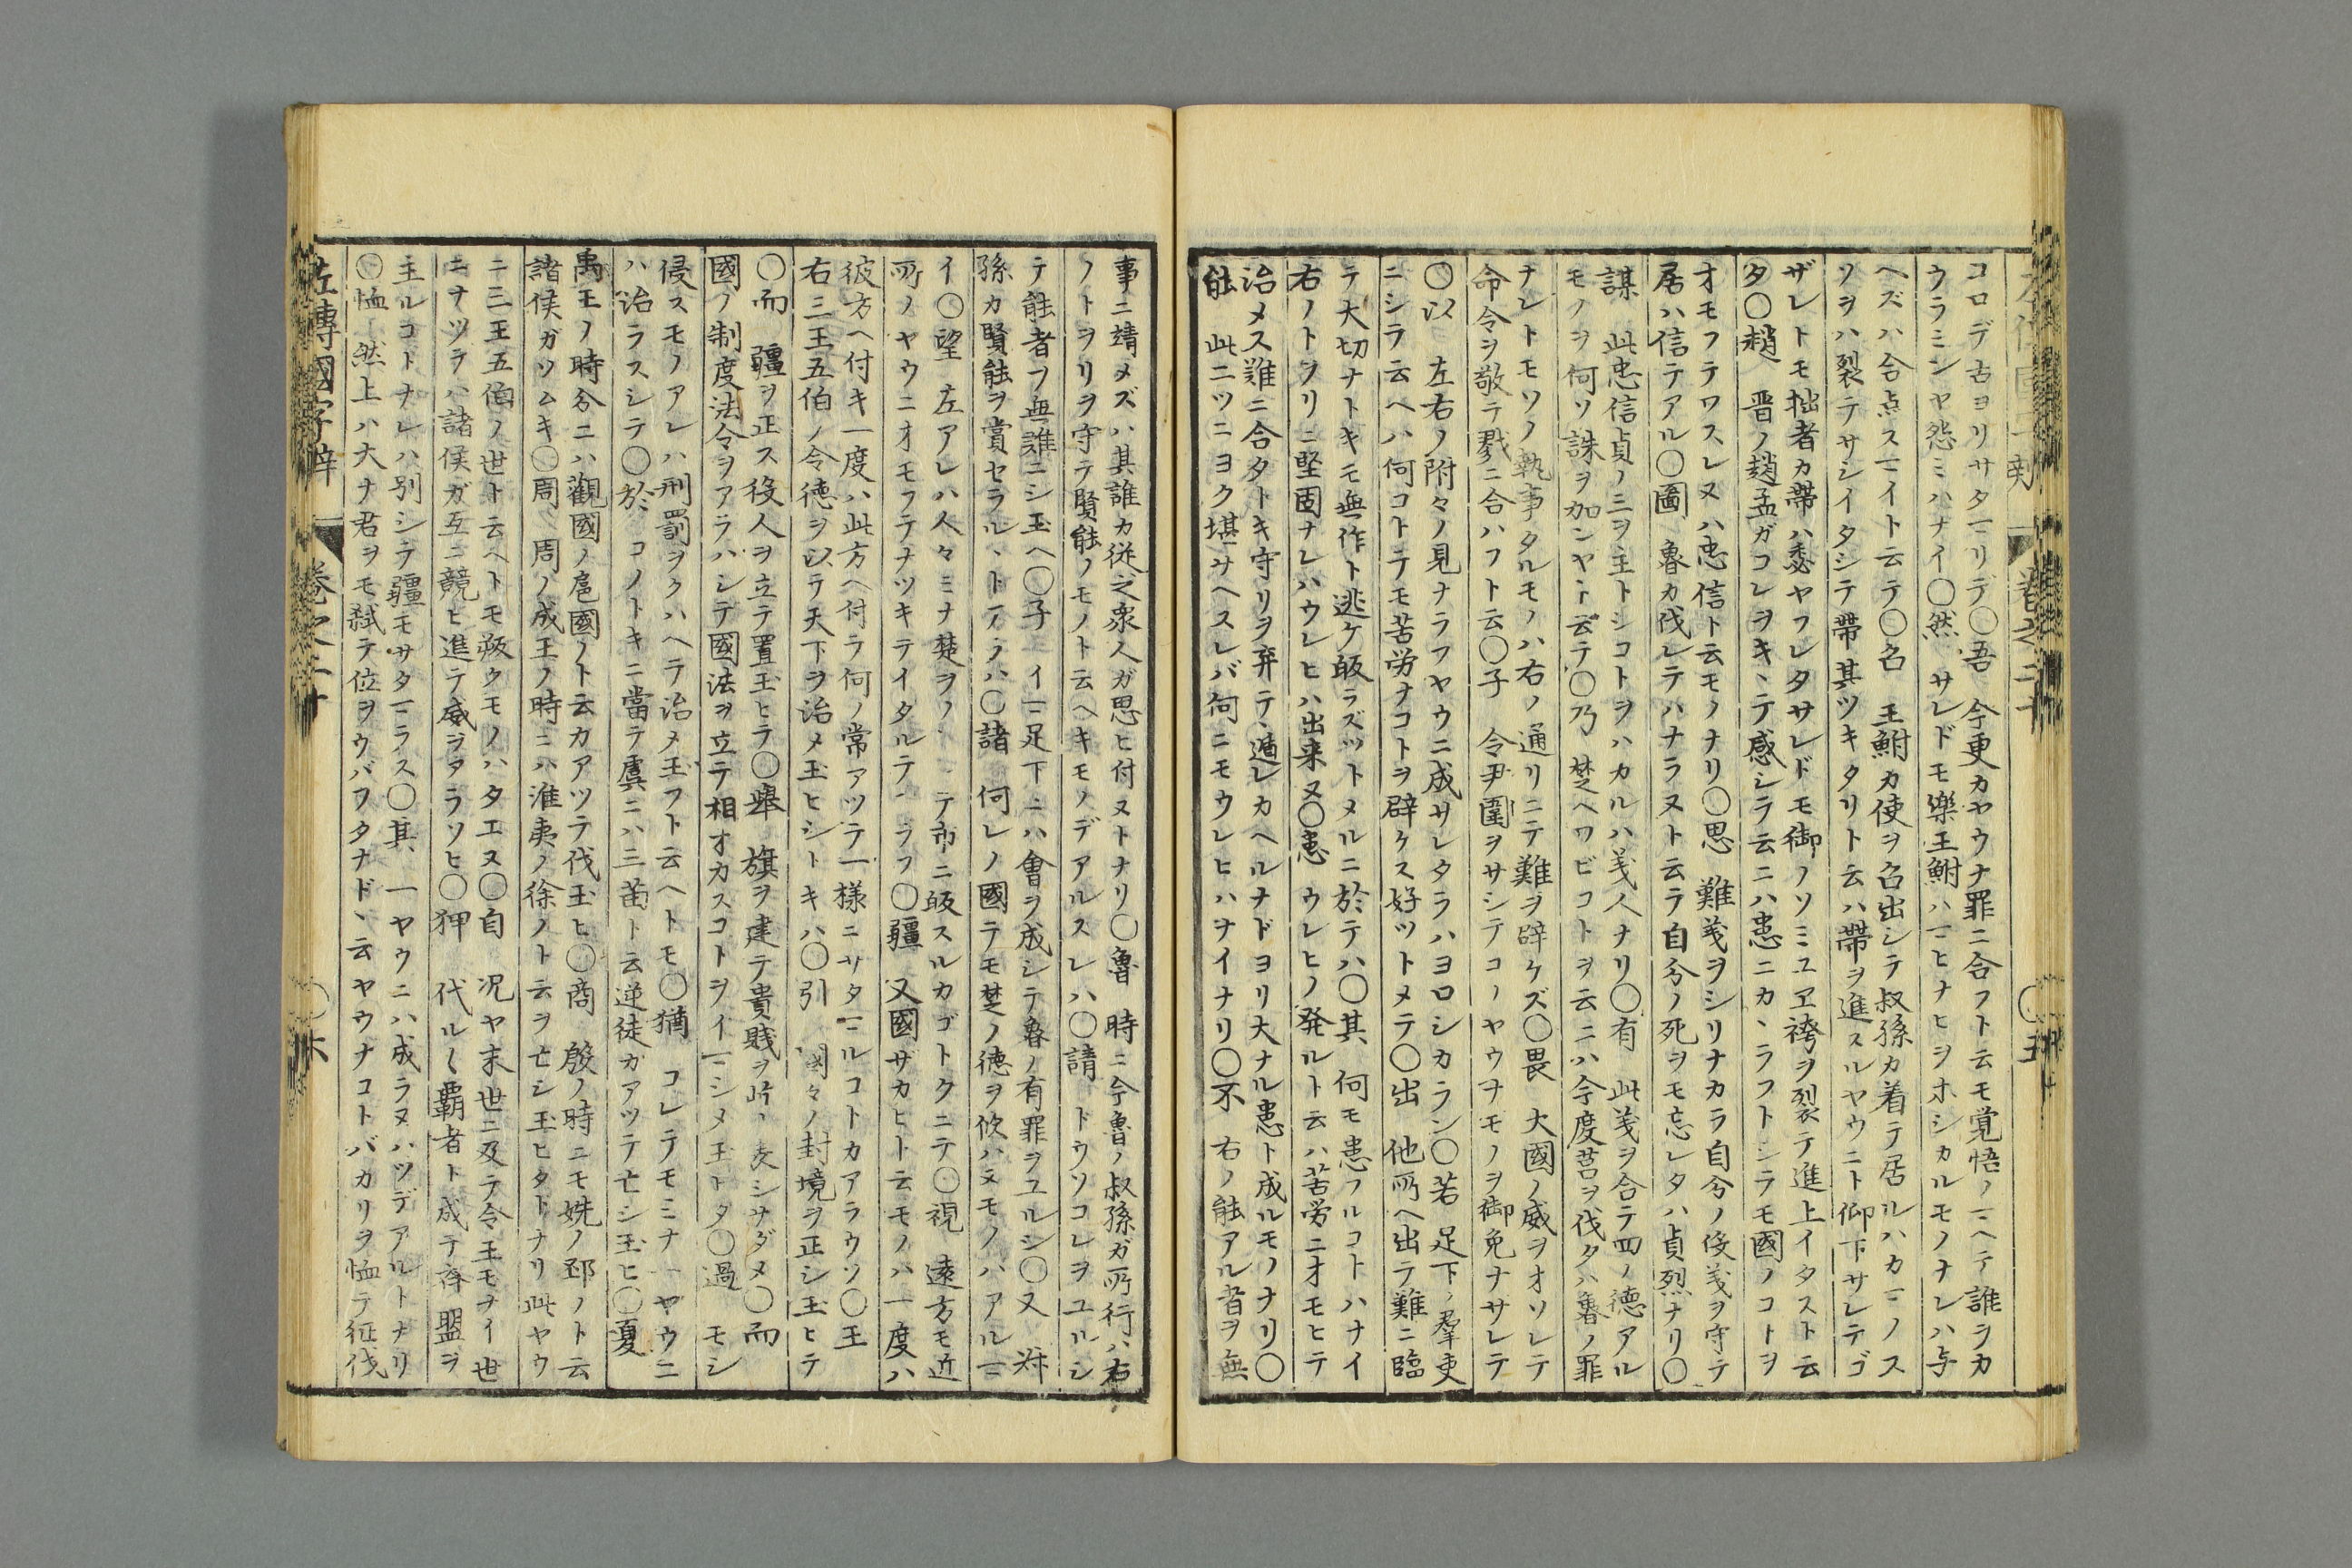 コロデ古ヨリサタマリデ○吾 今更カヤウナ罪ニ合フト云モ覚悟ノマヘデ誰ヲカ
ウラミンヤ怨ミハナイ○然 サレドモ樂王鮒ハマヒナヒヲホシカルモノナレハ与
ヘズハ合点スマイト云テ○召 王鮒カ使ヲ召出シテ叔孫カ着テ居ルハカマノス
ソヲハ裂テサシイタシテ帶其ツキタリト云ハ帶ヲ進スルヤウニト仰下サレテゴ
ザレトモ拙者カ帶ハ悉ヤフレタサレドモ御ノソミユヱ袴ヲ裂テ進上イタスト云
タ○趙 晋ノ趙孟ガコレヲキヽテ感シテ云ニハ患ニカヽラフトシテモ國ノコトヲ
オモフテワスレヌハ忠信ト云モノナリ○思 難義ヲシリナカラ自分ノ役義ヲ守テ
居ハ信テアル○圖 魯カ伐レテハナラヌト云テ自分ノ死ヲモ忘レタハ貞烈ナリ○
謀 此忠信貞ノ三ヲ主トシコトヲハカルハ義人ナリ○有 此義ヲ合テ四ノ徳アル
モノヲ何ソ誅ヲ加ンヤト云テ○乃 楚ヘワビコトヲ云ニハ今度莒ヲ伐タハ魯ノ罪
ナレトモソノ執事タルモノハ右ノ通リニテ難ヲ辟ケズ○畏 大國ノ威ヲオソレテ
命令ヲ敬テ戮ニ合ハフト云○子 令尹圍ヲサシテコノヤウナモノヲ御免ナサレテ
○以 左右ノ附々ノ見ナラフヤウニ成サレタラハヨロシカラン○若 足下ノ羣吏
ニシテ云ヘハ何コトテモ苦労ナコトヲ辟ケス好ツトメテ○出 他所ヘ出テ難ニ臨
テ大切ナトキモ無作ト逃ケ皈ラズツトメルニ於テハ○其 何モ患フルコトハナイ
右ノトヲリニ堅固ナレハウレヒハ出来ヌ○患 ウレヒノ発ルト云ハ苦労ニオモヒテ
治メス難ニ合タトキ守リヲ弃テ遁レカヘルナドヨリ大ナル患ト成ルモノナリ○
能 此二ツニヨク堪サヘスレバ何ニモウレヒハナイナリ○不 右ノ能アル者ヲ無
事ニ靖メズハ其誰カ従之衆人ガ思ヒ付ヌトナリ○魯 時ニ今魯ノ叔孫ガ所行ハ右
ノトヲリヲ守テ賢能ノモノト云ヘキモノデアルスレハ○請 ドウソコレヲユルシ
テ能者ヲ無誰ニシ玉ヘ○子 イマ足下ニハ會ヲ成シテ魯ノ有罪ヲユルシ○又 
孫カ賢能ヲ賞セラルヽトアラハ○諸 何レノ國テモ楚ノ徳ヲ依ハヌモノハアルマ
イ○望 左アレハ人々ミナ楚ヲ テ市ニ皈スルカゴトクニテ○視 遠方モ近
所ノヤウニオモフテナツキテイタルテアラフ○疆 又國ザカヒト云モノハ一度ハ
彼方ヘ付キ一度ハ此方ヘ付テ何ノ常アツテ一樣ニサタマルコトカアラウソ○王
右三王五伯ノ令徳ヲ以テ天下ヲ治メ玉ヒシトキハ○引 國々ノ封境ヲ正シ玉ヒテ
○而 疆ヲ正ス役人ヲ立テ置玉ヒテ○擧 旗ヲ建テ貴賤ヲ シサダメ○而
國ノ制度法令ヲアラハシテ國法ヲ立テ相オカスコトヲイマシメ玉トタ○過 モシ
侵スモノアレハ刑罰ヲクハヘテ治メ玉フト云ヘトモ○猶 コレテモミナ一ヤウニ
ハ治ラスシテ○於 コノトキニ當テ虞ニハ三苗ト云逆徒ガアツテ亡シ玉ヒ○夏
禹王ノ時分ニハ觀國ノ扈國ノト云カアツテ伐玉ヒ○商 殷ノ時ニモ姺ノ邳ノト云
諸侯ガソムキ○周 周ノ成王ノ時ニハ淮夷ノ徐ノト云ヲ亡シ玉ヒタトナリ此ヤウ
ニ三王五伯ノ世ト云ヘトモ叛クモノハタエヌ○自 况ヤ末世ニ及テ令王モナイ世
ニナツテハ諸侯ガ互ニ競ヒ進テ威ヲアラソヒ○狎 代ル〱覇者ト成テ斉盟ヲ
主ルコトナレハ別シテ疆モサタマラス○其 一ヤウニハ成ラヌハツデアルトナリ
○恤 然上ハ大ナ君ヲモ弑テ位ヲウバフタナドヽ云ヤウナコトバカリヲ恤テ征伐
左傳國字辯 巻之二十 ○六